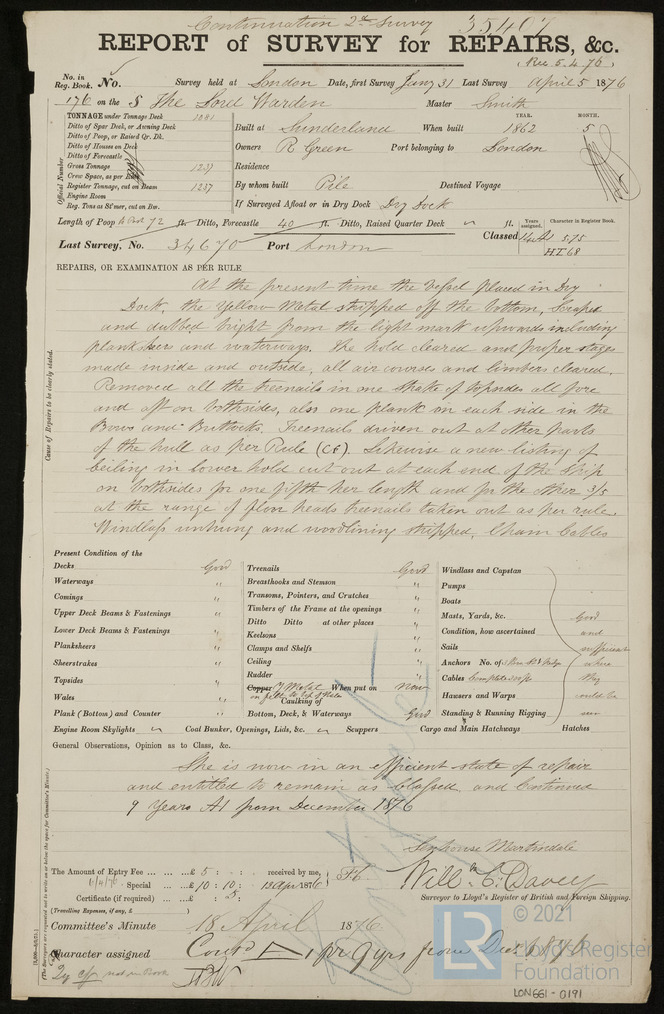 Continuation 2nd Survey 35407
REPORT of SURVEY for REPAIRS, &c.
(Rec 5.4.76)
No. in Reg. Book. No. Survey held at London Date, first Survey Jany 31 Last Survey April 5 1876
176 on the S The Lord Warden Master Smith
TONNAGE under Tonnage Deck 1081
Ditto of Spar Deck, or Awning Deck
Ditto of Poop, or Raised Qr. Dk.
Ditto of Houses on Deck
Ditto of Forecastle
Gross Tonnage 1237
Crew Space, as per Rule
Register Tonnage, cut on Beam 1237
Engine Room
Reg. Tons as St'mer, cut on Bm.
Official Number
YEAR. MONTH.
Built at Sunderland When built 1862 5
Owners R Green Port belonging to London
Residence
By whom built Pile Destined Voyage
If Surveyed Afloat or in Dry Dock Dry Dock
Length of Poop 72 ft. Ditto, Forecastle 40 ft. Ditto, Raised Quarter Deck ft.
Years assigned. Character in Register Book.
Classed 14 A1 5.75
H.T. 68
Last Survey, No. 34670 Port London
REPAIRS, OR EXAMINATION AS PER RULE
At the present time the Vessel placed in Dry
Dock, the Yellow Metal stripped off the bottom, Scraped
and dubbed bright from the light mark upwards including
planksheers and waterways. The hold cleared and proper stages
made inside and outside, all air courses and limbers cleared.
Removed all the treenails in one strake of topsides all fore
and aft on bothsides, also one plank on each side in the
Bows and Buttocks. Treenails driven out at other parts
of the hull as per Rule (Cf). Likewise a new listing of
Ceiling in lower hold cut out at each end of the Ship
on bothsides for one fifth her length and for the other 3/5
at the range of floor heads treenails taken out as per rule.
Windlass unhung and woodlining stripped, Chain Cables
Cause of Repairs to be clearly stated.
Present Condition of the
Decks Good
Waterways "
Comings "
Upper Deck Beams & Fastenings "
Lower Deck Beams & Fastenings "
Planksheers "
Sheerstrakes "
Topsides "
Wales "
Plank (Bottom) and Counter "
Treenails Good
Breasthooks and Stemson "
Transoms, Pointers, and Crutches "
Timbers of the Frame at the openings "
Ditto Ditto at other places "
Keelsons "
Clamps and Shelfs "
Ceiling "
Rudder "
Copper Y Metal When put on Now
Caulking of
Bottom, Deck, & Waterways Good
Windlass and Capstan
Pumps
Boats
Masts, Yards, &c. Good
Condition, how ascertained and
Sails sufficient
Anchors No. of where
Cables they
Hawsers and Warps could be
Standing & Running Rigging seen
Engine Room Skylights Coal Bunker, Openings, Lids, &c. Scuppers Cargo and Main Hatchways Hatches
General Observations, Opinion as to Class, &c.
She is now in an efficient state of repair
and entitled to remain as Classed and Continued
9 Years A1 from December 1876
Senhouse Martindale
The Amount of Entry Fee £ 5 : : received by me,
Special £ 10 : 10 : 12 Apr 1876
Certificate (if required) £ : 5
(Travelling Expenses, if any, £ )
Willm C. Davey
Surveyor to Lloyd's Register of British and Foreign Shipping.
Committee's Minute 18 April 1876
Character assigned Contd A 1 for 9 yrs from Decr 1876
not in Book
© 2021
LR
Lloyd's Register
Foundation
LON661-0191